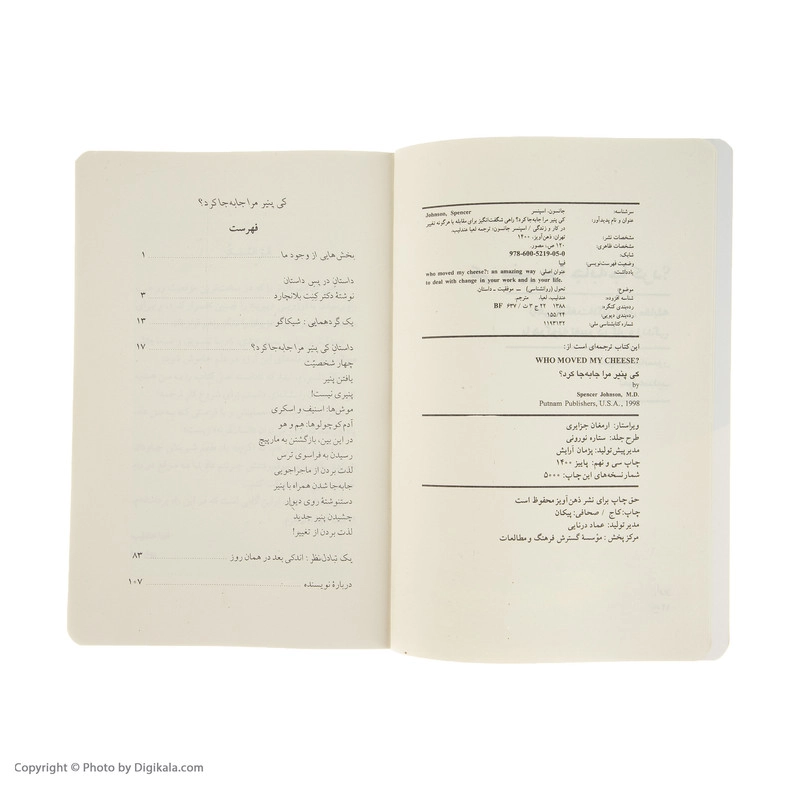 سرشناسه: جانسون، اسپنسر Johnson, Spencer
عنوان و نام پدیدآور: کی پنیر مرا جابه‌جا کرد؟ راهی شگفت‌انگیز برای مقابله با هرگونه تغییر
در کار و زندگی / اسپنسر جانسون؛ ترجمه لعیا عندلیب.
مشخصات نشر: تهران، ذهن‌آویز، ۱۴۰۰
مشخصات ظاهری: ۱۲۰ ص، مصور.
شابک: 978-600-5219-05-0
وضعیت فهرست‌نویسی: فیپا
یادداشت: عنوان اصلی: who moved my cheese?: an amazing way
to deal with change in your work and in your life.
موضوع: تحول (روانشناسی) ــ موفقیت ـ داستان
شناسه افزوده: عندلیب، لعیا، مترجم
رده‌بندی کنگره: ۱۳۸۸ ۲۲ ج ۳ ث / BF ۶۳۷
رده‌بندی دیویی: ۱۵۵/۲۴
شماره کتابشناسی ملی: ۱۱۹۳۱۳۲
این کتاب ترجمه‌ای است از:
WHO MOVED MY CHEESE?
کی پنیر مرا جابه‌جا کرد؟
by
Spencer Johnson, M.D.
Putnam Publishers, U.S.A., 1998
ویراستار: ارمغان جزایری
طرح جلد: ستاره نورونی
مدیر پیش‌تولید: پژمان آرایش
چاپ سی و نهم: پاییز ۱۴۰۰
شمار نسخه‌های این چاپ: ۵۰۰۰
حق چاپ برای نشر ذهن‌آویز محفوظ است
چاپ: کاج / صحافی: پیکان
مدیر تولید: عماد درنایی
مرکز پخش: مؤسسهٔ گسترش فرهنگ و مطالعات
کی پنیر مرا جابه‌جا کرد؟
فهرست
بخش‌هایی از وجود ما ۱
داستان در پس داستان
نوشتهٔ دکتر کنت بلانچارد ۳
یک گردهمایی: شیکاگو ۱۳
داستان کی پنیر مرا جابه‌جا کرد؟ ۱۷
چهار شخصیّت
یافتن پنیر
پنیری نیست!
موش‌ها: اسنیف و اسکری
آدم کوچولوها: هم و هو
در این بین، بازگشتن به مارپیچ
رسیدن به فراسوی ترس
لذت بردن از ماجراجویی
جابه‌جا شدن همراه با پنیر
دستنوشتهٔ روی دیوار
چشیدن پنیر جدید
لذت بردن از تغییر!
یک تبادل‌نظر: اندکی بعد در همان روز ۸۳
دربارهٔ نویسنده ۱۰۷
Copyright © Photo by Digikala.com